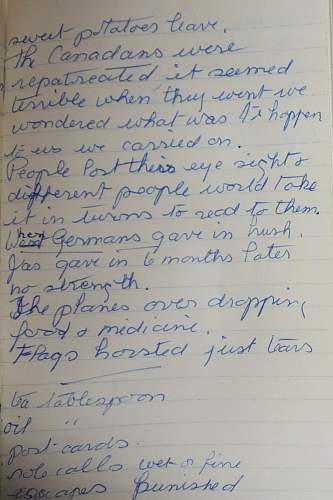 sweet potatoes leave.
The Canadans were
repatreated it seemed
terrible when they went we
wondered what was to happen
to us we carried on.
People lost their eye sight &
different people would take
it in turns to read to them.
When Germans gave in hush.
Jas gave in 6 months later
no strength.
The planes over dropping
food & medicine.
Flags hoisted just tears
tea tablespoon
oil "
post cards.
role calls wet or fine
escapes punished